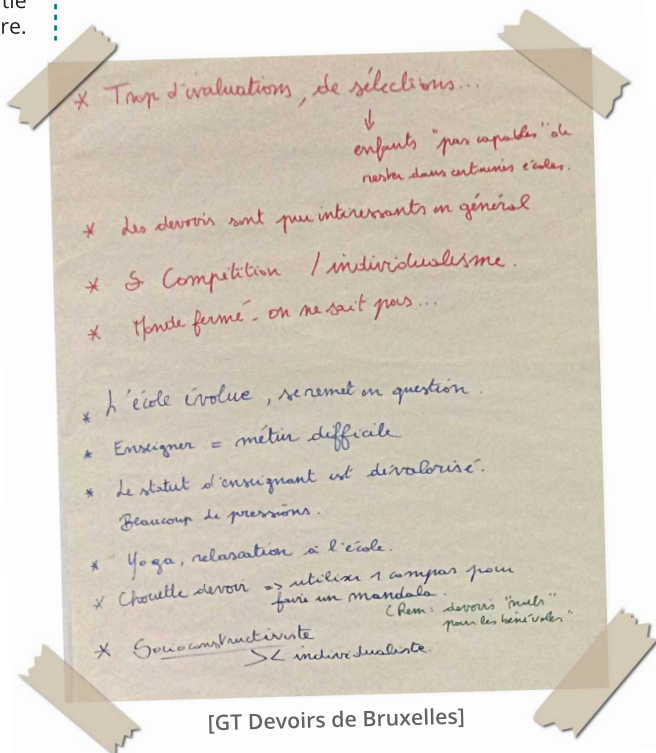 tie
re.
* Trop d'évaluations, de sélections...
↓
enfants "pas capables" de
rester dans certaines écoles.
* Les devoirs sont peu intéressants en général
* Compétition / individualisme.
* Monde fermé - on ne sait pas...
* L'école évolue, se remet en question.
* Enseigner = métier difficile
* Le statut d'enseignant est dévalorisé.
Beaucoup de pressions.
* Yoga, relaxation à l'école.
* Chouette devoir => utiliser 1 compas pour
faire un mandala.
(Rem : devoirs "nuls"
pour les bénévoles"
* Socioconstructiviste
>< individualiste.
[GT Devoirs de Bruxelles]